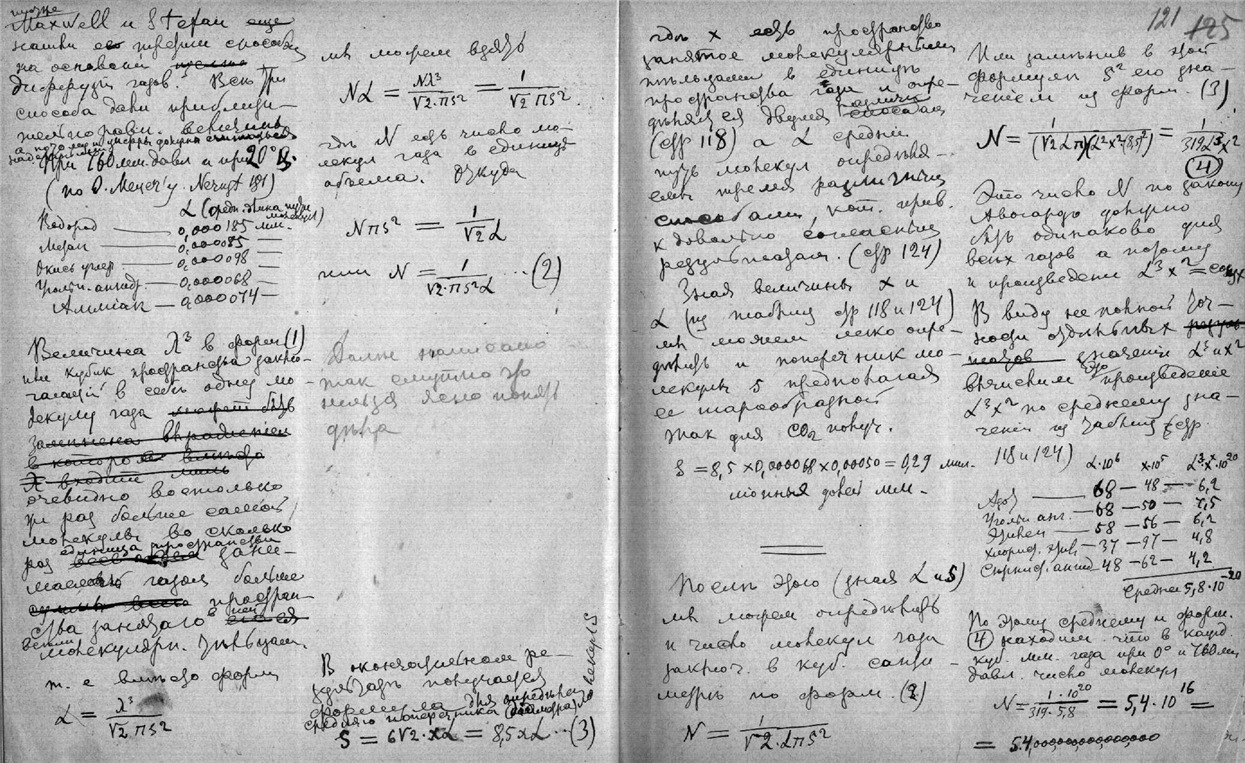 Maxwell и Stefan еще
нашли его третий способ
на основании
диффузии газов. Все три
способа дали приблизи-
тельно равн. величины
При 760 мм. давл и при 20° Ц.
(по О. Мейеру.
α (средн. длина пути молекул)
Водород — 0,000185 мм.
Метан — 0,000085 —
Окись углер. — 0,000098 —
Угольн. ангид. — 0,000068 —
Аммиак — 0,000074 —
Величина λ³ в форм (1)
или кубик пространства заклю-
чающий в себе одну мо-
лекулу газа может быть
заменена выражением
в котором вместо
λ входит лишь
очевидно во столько
же раз больше самой
молекулы во сколько
раз единица пространства зани-
маемого газом больше
пространства
занятого в ней
молекулярн. тельцами.
т. е вместо форм
α = λ³ / √2 π s²
мы можем взять
Nα = Nλ³ / √2 · πs² = 1 / √2 πs²
где N есть число мо-
лекул газа в единице
объема. Откуда
Nπs² = 1 / √2 α
или N = 1 / √2 · πs²α ... (2)
Далее написано
так смутно что
нельзя ясно понять
дела
В окончательном ре-
зультате получается
формула для определен.
среднего поперечника (диаметра) молекул S
S = 6√2 · xα = 8,5xα ... (3)
121 125
где x есть пространство
занятое молекулярными
тельцами в единице
пространства газа и опре-
деляется двумя различн. способами
(стр 118) а α средний
путь молекул определя-
ем тремя различными
способами, кот. прив.
к довольно согласным
результатам. (стр 124)
Зная величины x и
α (из таблиц стр 118 и 124)
мы можем легко опре-
делить и поперечник мо-
лекулы s предполагая
ее шарообразной
Так для CO₂ получ.
S = 8,5 × 0,000068 × 0,00050 = 0,29 мил.
лионных долей мм.
После этого (зная α и S)
мы можем определить
и число молекул газа
заключ. в куб. санти-
метре по форм. (2)
N = 1 / √2 · απs²
Или заменив в этой
формуле s² его зна-
чением из форм. (3)
N = 1 / (√2 απ)(α²x²(8,5)²) = 1 / 319α³x²
(4)
Это число N по закону
Авогадро должно
быть одинаково для
всех газов а потому
и произведение α³x² = const
В виду не полной точ-
ности отдельных
значений α³ и x²
вычислим это произведение
α³x² по среднему зна-
чению из таблиц (стр.
118 и 124)
α·10⁶ x·10⁵ α³x²·10²⁰
Азот — 68 — 48 — 6,2
Угольн анг. — 68 — 50 — 7,5
Этилен — 58 — 56 — 6,2
Хлорист. этил. — 37 — 97 — 4,8
Сернист. ангид — 48 — 62 — 4,2
Среднее 5,8·10⁻²⁰
По этому среднему и форм.
(4) находим что в кажд.
куб. мм. газа при 0° и 760 мм
давл. число молекул
N = 1·10²⁰ / 319·5,8 = 5,4·10¹⁶ =